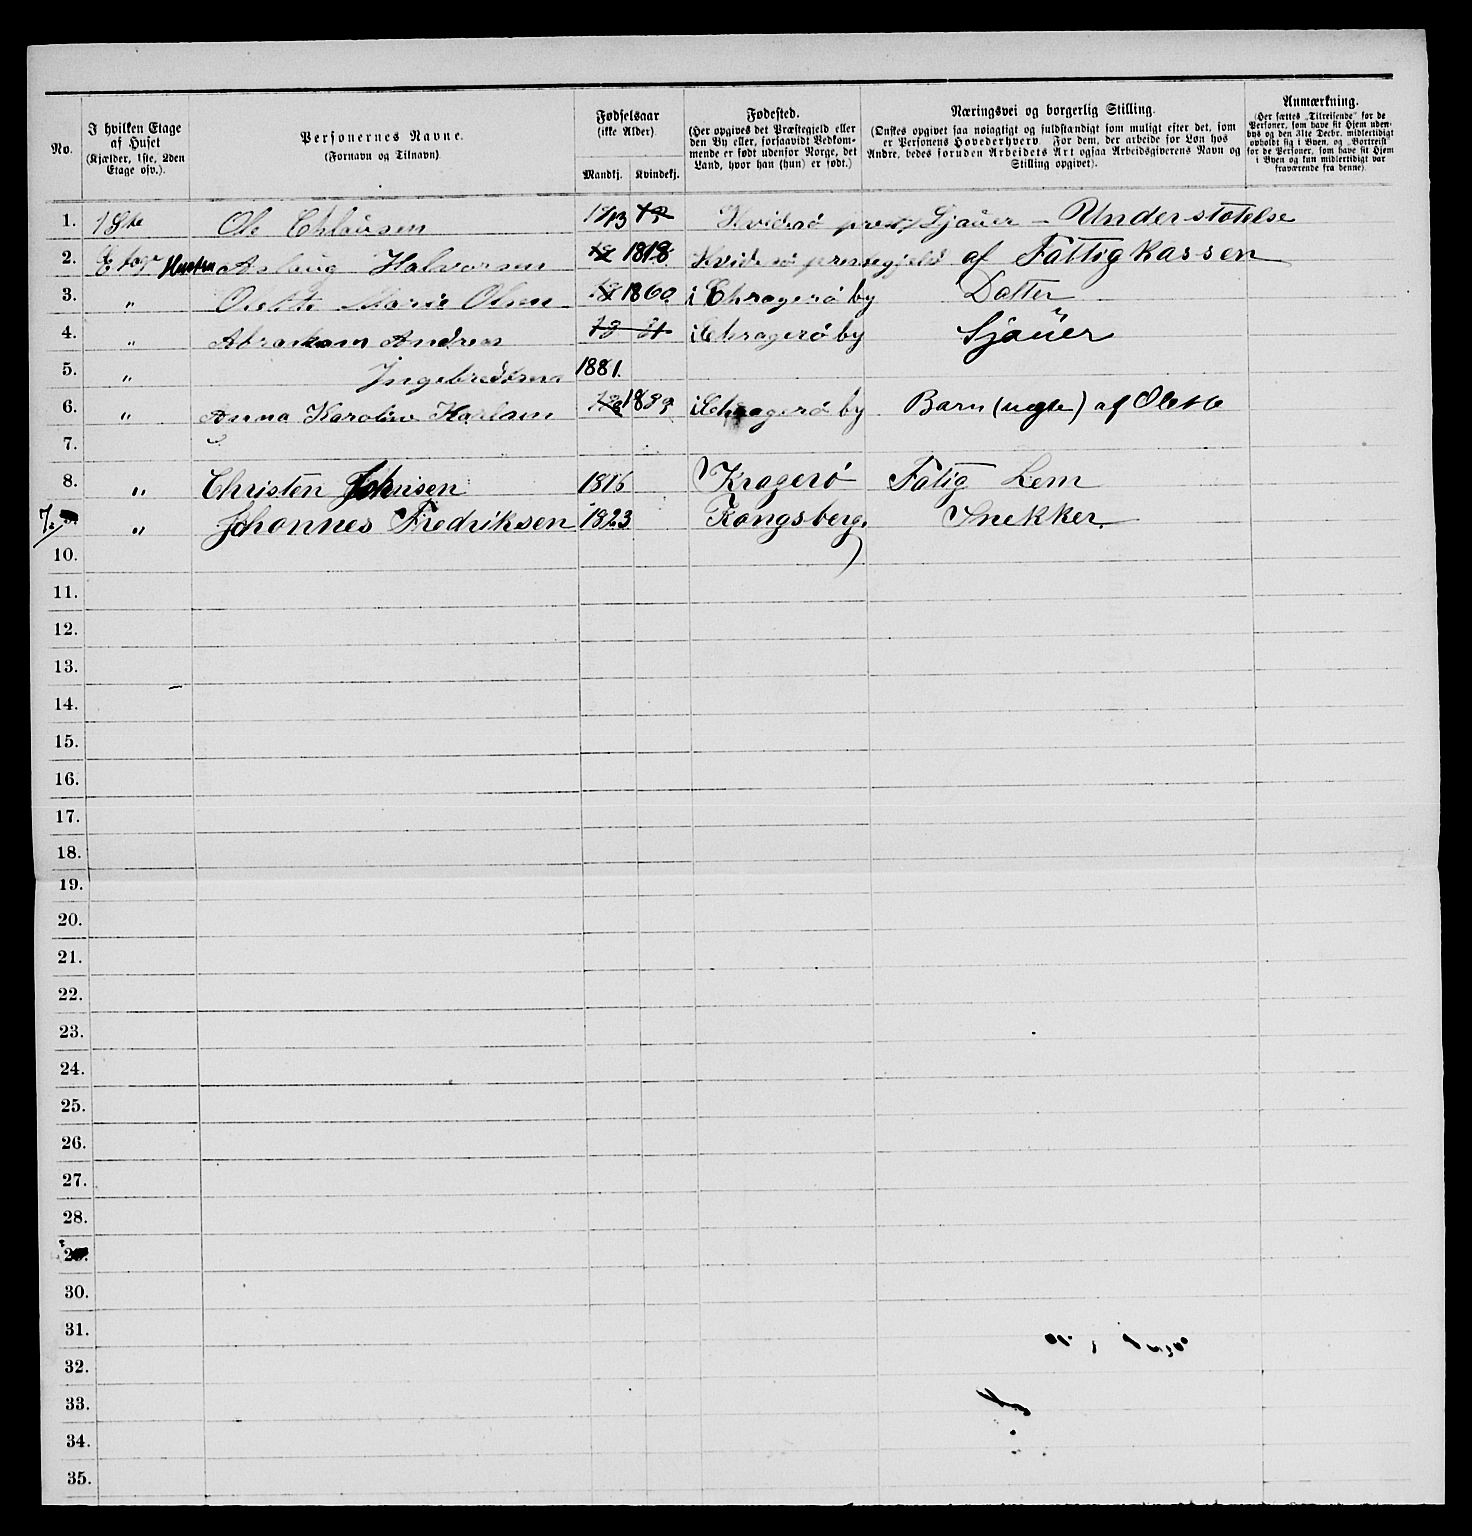 No.
I hvilken Etage
af Huset
(Kjælder, 1ste, 2den
Etage osv.).
Personernes Navne.
(Fornavn og Tilnavn)
Fødselsaar
(ikke Alder)
Mandkj. Kvindekj.
Fødested.
(Her opgives det Præstegjeld eller
den By eller, forsaavidt Vedkom-
mende er født udenfor Norge, det
Land, hvor han (hun) er født.)
Næringsvei og borgerlig Stilling.
(Ønskes opgivet saa nøiagtigt og fuldstændigt som muligt efter det, som
er Personens Hovederhverv For dem, der arbeide for Løn hos
Andre, bedes foruden Arbeidets Art ogsaa Arbeidsgiverens Navn og
Stilling opgivet).
Anmærkning.
(Her sættes „Tilreisende" for de
Personer, som have sit Hjem uden-
bys og den 31te Decbr. midlertidigt
opholdt sig i Byen, og „Bortreist"
for de Personer, som have sit Hjem
i Byen og kun midlertidigt var
fraværende fra denne)
1. 1Ste Ole Chlausen 1813 Hvidesö Sjauer - Understøtelse
2. Etage Hustru Aslaug Halvorsen 1818 Hvidesö af Fattigkassen
3. " Marie Olsen 1860 i Chragerö by Datter
4. " Abraham Andreas i Chragerö by Sjauer
5. " Ingebredtsen 1881.
6. " Anna Karoline i Chragerö by Barn (uegte) af Olette
7.
8. " Christen Johnsen 1816 Kragerö Fatig Lem
7. " Johannes Fredriksen 1823 Kongsberg. Snekker.
10.
11.
12.
13.
14.
15.
16.
17.
18.
19.
20.
21.
22.
23.
24.
25.
26.
27.
28.
29.
30.
31.
32.
33.
34.
35.